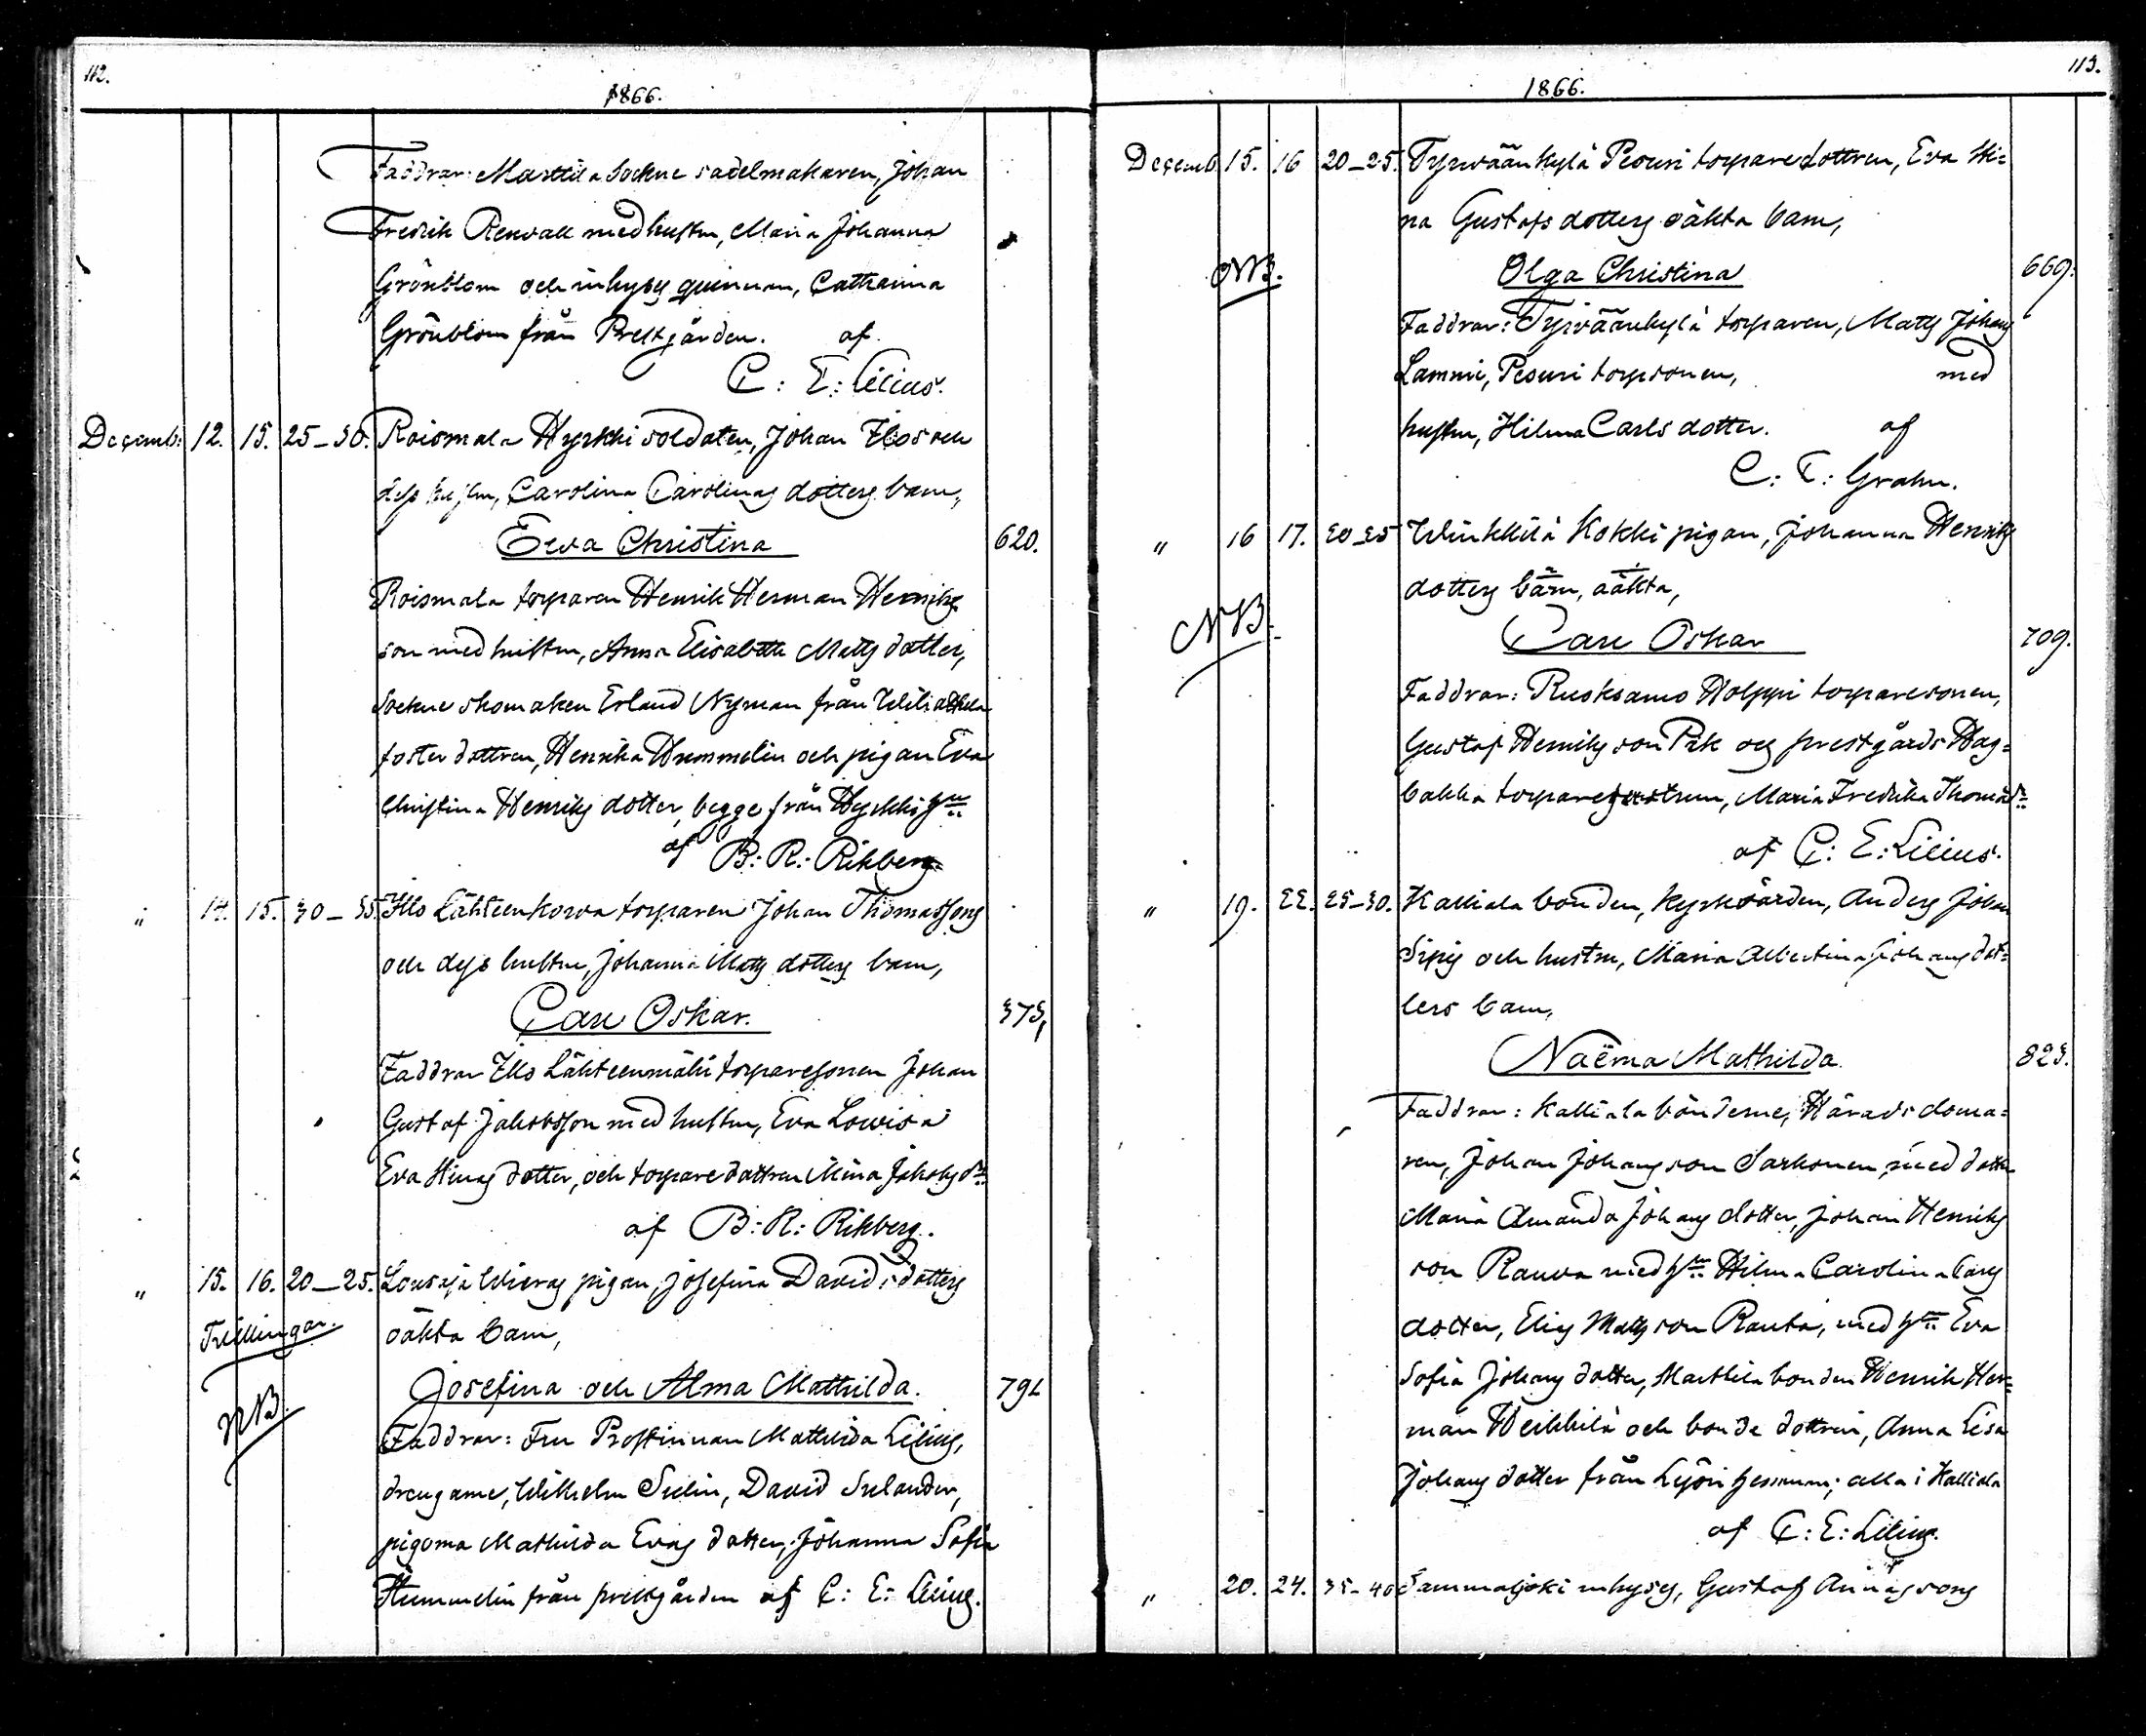 112.
1866.
Faddrar: Marttila Sockne sadelmakaren, Johan
Fredrik Renvall med hustru, Maria Johanna
Grönblom och inhyses quinnan, Catharina
Grönblom från Prestgården. af
C: E: Lilius.
Decemb: 12. 15. 25–30. Roismala Hyrkki soldaten, Johan och
dess hustru, Carolina Carolinas dotters barn,
Eva Christina 620.
Roismala torparen Henrik Herman Henriks
son med hustru, Anna Elisabeth Matts dotter,
Sockne skomaken Erland Nyman från
foster dottren, Henrika Hummelin och pigan Eva
Christina Henriks dotter, begge från Hyrkki
af B: R: Rikberg
" 14. 15. 30–35. Illo Lähteenkorva torparen Johan Thomassons
och dess hustru, Johanna Matts dotters barn,
Carl Oskar. 373,
Faddrar Illo Lähteenmäki torparesonen Johan
Gustaf Jakobsson med hustru, Eva Lovisa
Eva Stinas dotter, och torpare dottren Mina Jakobs dr
af B: R: Rikberg.
" 15. 16. 20–25. Lousaja Wieras pigan, Josefina Davids dotters
Trillingar. oäkta barn,
NB. Josefina och Alma Mathilda. 791
Faddrar: Fru Prostinnan Mathilda Lilius,
drengarne, Wilhelm Sulin, David Sulander,
pigorna Mathilda Evas dotter, Johanna Sofia
Hummelin från prestgården af C: E: Lilius.
113.
1866.
Decemb 15. 16 20–25. Tyrväänkylä Pesuri torpare dottren, Eva Sti=
na Gustafs dotters oäkta barn,
NB. Olga Christina 669.
Faddrar: Tyrväänkylä torparen, Matts Johans
Lammi, Pesuri torpsonen, med
hustru, Hilma Carls dotter. af
C: T: Grahn.
" 16 17. 30–35 Winkkilä Kokki pigan, Johanna Henriks
dotters barn, oäkta,
NB. Carl Oskar 709.
Faddrar: Ruoksamo Holppi torparesonen,
Gustaf Henriks son och prestgårds Hag=
bakka torparehustrun, Maria Fredrika Thomæ dr
af C: E: Lilius.
" 19. 22. 25–30. Kalliala bonden, Kyrkvärden, Anders Johan
Sipis och hustru, Maria Albertina Johans dot=
ters barn,
Naëma Mathilda 823.
Faddrar: Kalliala bönderne, Härads doma=
ren, Johan Johans son Sarkonen, med dotter
Maria Amanda Johans dotter, Johan Henriks
son Rauva med hru Hilma Carolina Carls
dotter, Elis Matts son Rauta, med hru Eva
Sofia Johans dotter, Marttila bonden Henrik Her=
man Heikkilä och bonde dottren, Anna Lisa
Johans dotter från Lyöri hemman; alla i Kalliala
af C: E: Lilius.
" 20. 24. 35–40 Sammaljoki inhyses, Gustaf Annæ sons